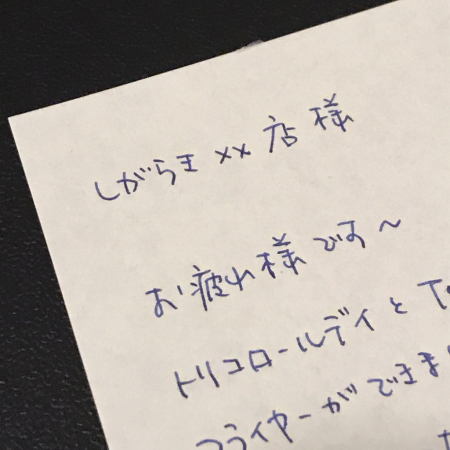 しがらき××店様
お疲れ様です〜
トリコロールデイとT
フライヤーができま